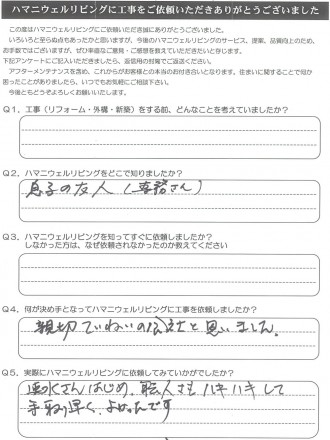 ハマニウェルリビングに工事をご依頼いただきありがとうございました
この度はハマニウェルリビングにご依頼いただき誠にありがとうございました。
いろいろと至らぬ点もあったかと思いますが、今後のハマニウェルリビングのサービス、提案、品質向上のため、
お手数ではございますが、ぜひ率直なご意見・ご感想を教えていただきたいと存じます。
下記アンケートにご記入いただきましたら、返信用の封筒でご返送ください。
アフターメンテナンスを含め、これからがお客様との本当のお付き合いとなります。住まいに関することで何か
困ったことがありましたら、いつでもお気軽にご相談下さい。
今後ともどうぞよろしくお願いいたします。
Q1、工事（リフォーム・外構・新築）をする前、どんなことを考えていましたか？
Q2、ハマニウェルリビングをどこで知りましたか？
息子の友人（専務さん）
Q3、ハマニウェルリビングを知ってすぐに依頼しましたか？
しなかった方は、なぜ依頼されなかったのか教えてください
Q4、何が決め手となってハマニウェルリビングに工事を依頼しましたか？
親切でいねいの会社と思いました。
Q5、実際にハマニウェルリビングに依頼してみていかがでしたか？
さんはじめ、職人さもハキハキして
手取り早く、よかったです